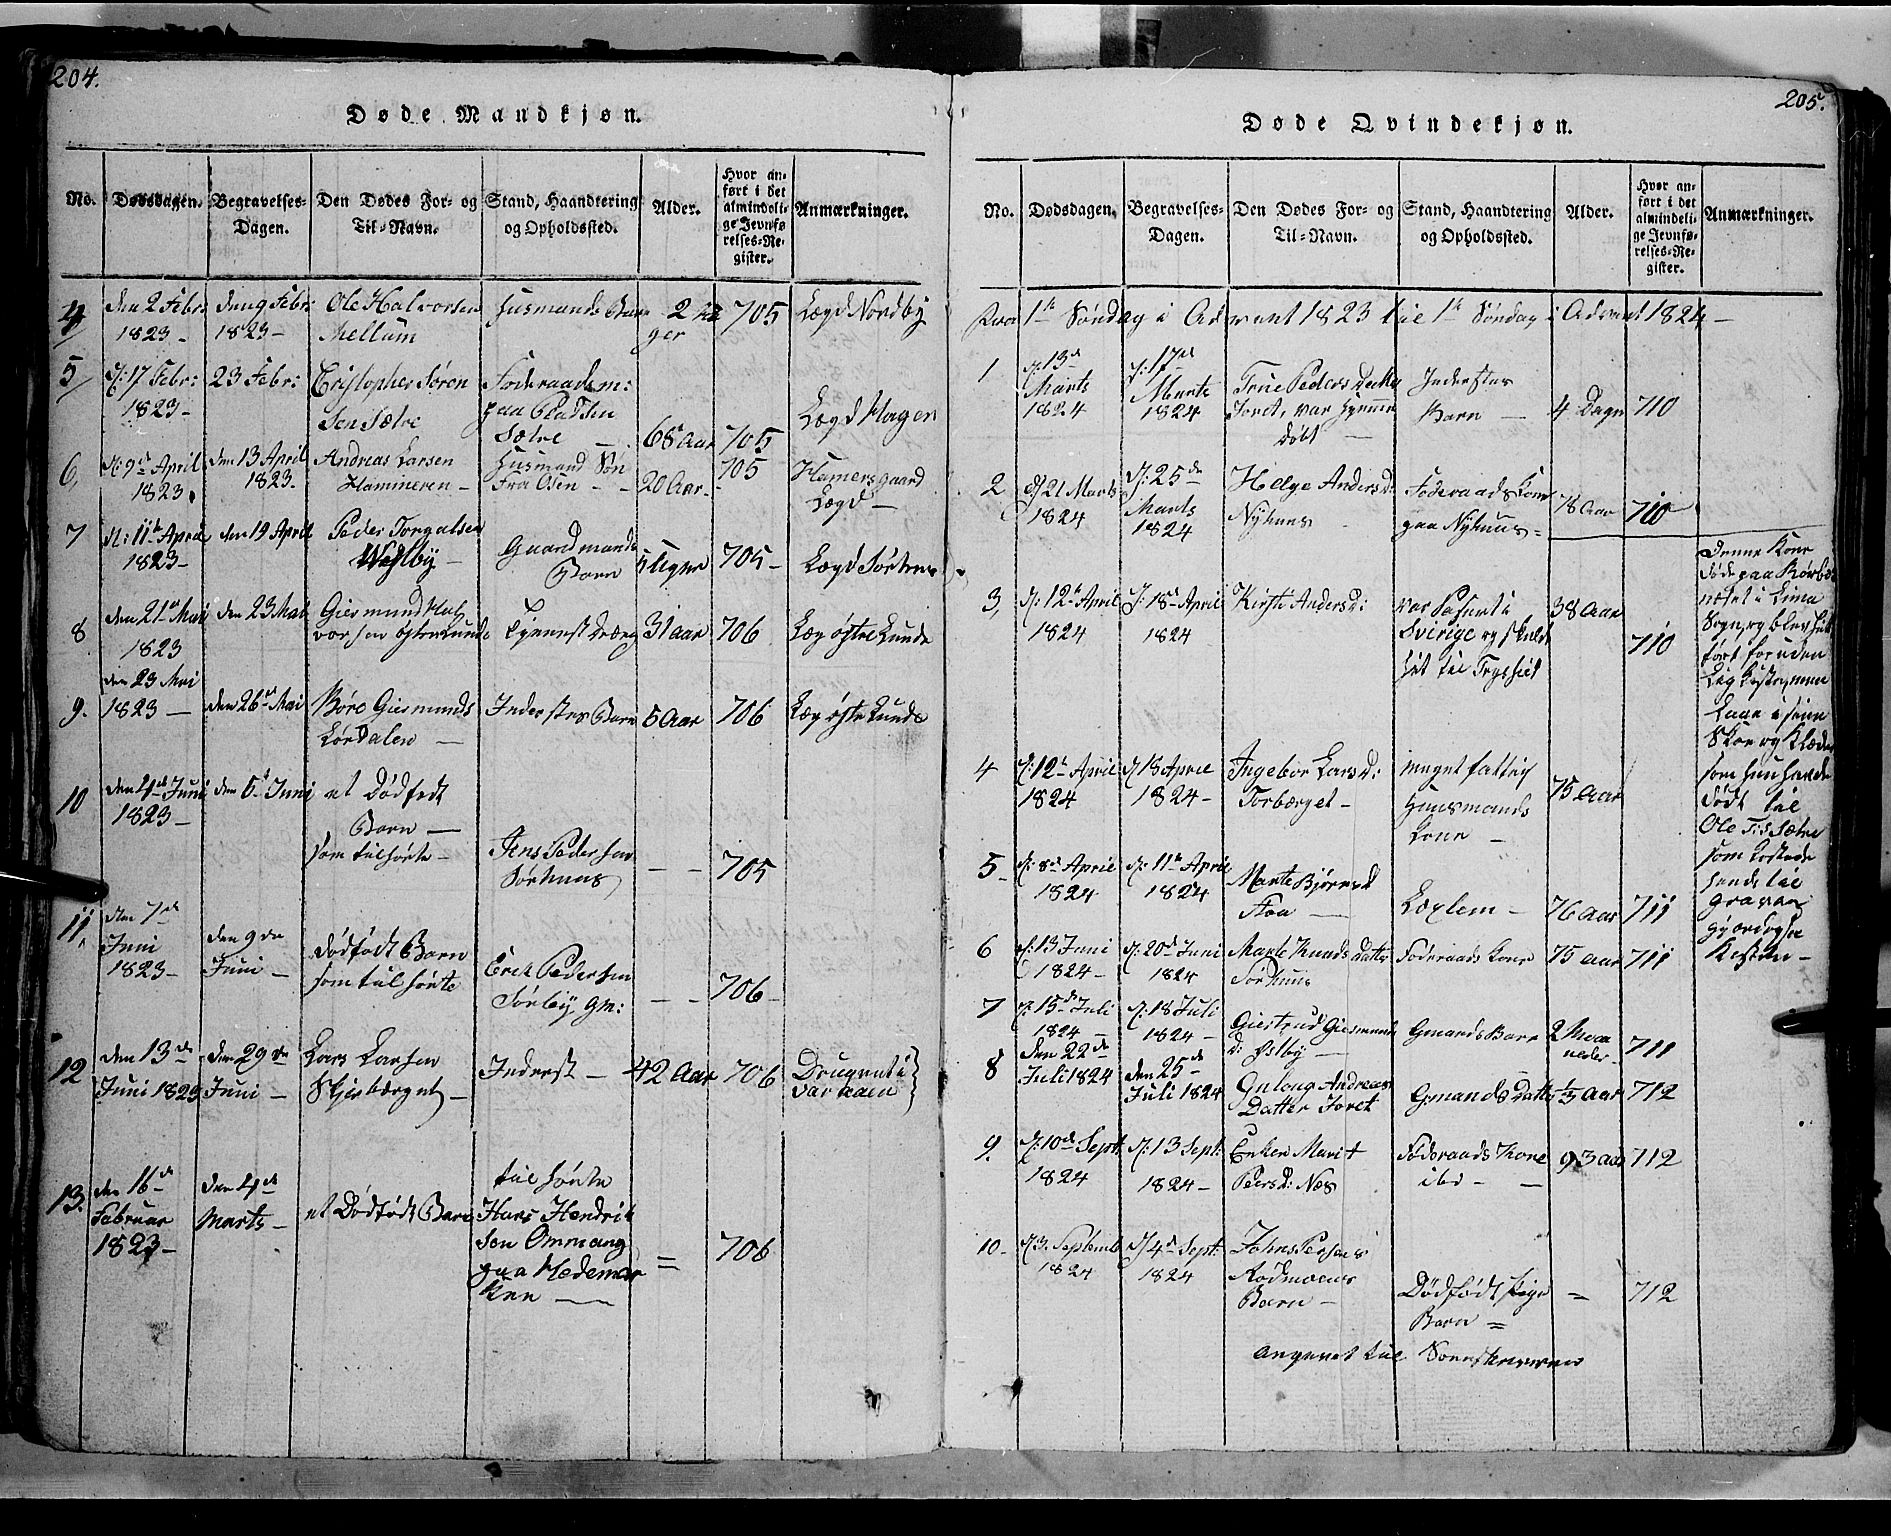 204.
Døde Mandkjøn.
No. Dødsdagen. Begravelses-Dagen. Den Dødes For- og Til-Navn. Stand, Haandtering og Opholdssted. Alder. Hvor anført i det almindelige Jevnførelses-Register. Anmærkninger.
4 den 2 Febr: 1823 - den 9 Febr: 1823 - Ole Halvorsen Mellum Husmands Barn 2 705 Lægd Nordby
5 d: 17 Febr: 1823 - 23 Febr: Cristopher Søren Sen Sætre Føderaadsm: paa Pladsen Sætre - 68 Aar 705 Lægd Hagen
6, d: 9de April 1823. den 13 April 1823. Andreas Larsen Hammeren - Husmand Søn Fra Osen - 20 Aar - 705 Hamersgaard Lægd -
7 d: 11te April 1823 - den 19 April Peder Torgalsen Westby - Gaardmands Barn 5 705 - Lægd Sørhuus
8 den 21de Mai 1823 den 23 Mai Giesmund Halvorsen østre Lunde 31 aar 706 Læg østre Lunde
9. den 23 Mai 1823 - den 26de Mai Børe Giesmunds Lørdalen - Inderstes Barn 5 Aar 706 Læg østre Lunde
10 den 4de Juni 1823 - den 6te Juni et Dødfødt Barn - som tilhørte - Jens Pedersen Sørhuus - - 705
11, den 7de Juni 1823 - den 9de Juni - dødfødt Barn som tilhørte Erik Pedersen Sørby gm: - - 706 -
12 den 13de Juni 1823 den 29de Juni - Lars Larsen Skjærbærget - Inderst - 42 Aar 706 Druknet i Var aaen
13. den 16de Februar 1823 - den 4de Marts - et Dødfødt Barn tilhørte Hans Hendriksen Ommang paa Hedemarken - = 706
205.
Døde Qvindekjøn.
No. Dødsdagen. Begravelses-Dagen. Den Dødes For- og Til-Navn. Stand, Haandtering og Opholdssted. Alder. Hvor anført i det almindelige Jevnførelses-Register. Anmærkninger.
Fra 1te Søndag i Advent 1823 til 1te Søndag i Advent 1824 -
1 d: 13de Marts 1824 d: 17de Marts 1824 True Peders Datter Joret, var hjemme døbt - Inderstes Barn - 4 Dage 710
2 d: 21 Marts 1824 d: 25de Marts 1824 Helge Anders D: Nyhuus - Føderaads Kone paa Nyhuus - 78 Aar 710
3, d: 12te April 1824 d: 18de April 1824 Kirsti Anders D: var Pasent i Sverige og hit til Trysild 38 Aar 710 Denne Kone døde paa næset i Lima Sogn, og blev hid ført foruden Lig Kiste, men Laae i sine Skoe og Klæder som hun havde død til Ole Sætre som Kostede hendes til gravan
4 d: 12te April 1824 d: 18 April 1824 - Ingebor Lars D: Torbærget - meget fattig Huusmands Kone - 75 Aar
5 - d: 8de April 1824 d: 11te April 1824 Marte Bjørnsd Floa - Læglem - 76 Aar 711
6 d: 13 Juni 1824 - d: 20de Juni 1824 Marte Knuds datter Sørhuus Føderaads Kone 75 aar 711
7 d: 15de Juli 1824 - d: 18 Juli 1824 - Giertrud Giesmunds d: Østby - Gmands Barn 2 Maaneder - 711
8 den 22de Juli 1824 den 25de Juli 1824 Gulong Andreas Datter Joret Gmands Datter 1/3 Aar 712
9. d: 10de Sept: 1824 d: 13 Sept: 1824 - Enken Marit Peersd: Næs Føderaads Kone ibd - - 93 aar 712
10 - d: 3. Septemb 1824 d: 4de Sept: 1824 Johns Persens Rødmoens Barn - Dødfødt Pige Barn = = 712
angevet til Sorenskriveren